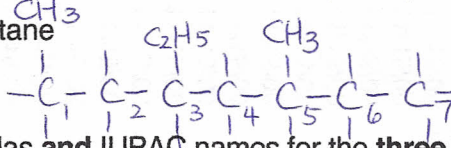 CH3
tane
C2H5 CH3
-C1-C-2C-3C-4C-5C-6C-7
las and IUPAC names for the three